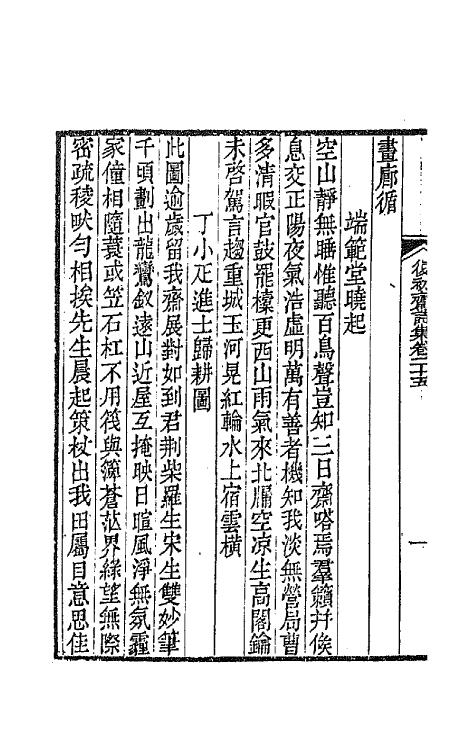 復初齋詩集卷二十五
一
畫廊循
端範堂曉起
空山靜無睡惟聽百鳥聲豈知三日齋嗒焉羣籟并俟
息交正陽夜氣浩虛明萬有善者機知我淡無營局曹
多清暇官鼓罷㯓更西山雨氣來北牖空凉生高閣鑰
未啓駕言趨重城玉河晃紅輪水上宿雲橫
丁小疋進士歸耕圖
此圖逾歲留我齋展對如到君荆柴羅生宋生雙妙筆
千頭劃出龍鸞釵遠山近屋互掩映日暄風淨無氛霾
家僮相隨蓑或笠石杠不用筏與簰蒼茫界綠望無際
密疏稜畎勻相挨先生晨起策杖出我田屬目意思佳